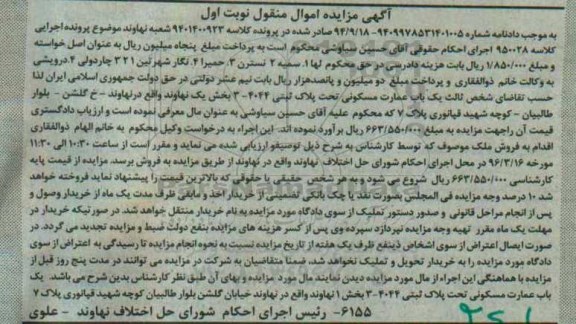 آگهی مزایده اموال منقول نوبت اول
به موجب دادنامه شماره ۹۴۰۹۹۷۸۵۳۱۴۰۱۰۰۵- ۹۴/۹/۱۸ صادر شده در پرونده کلاسه ۹۴۰۱۴۰۰۹۲۳ شعبه نهاوند موضوع پرونده اجرایی
کلاسه ۹۵۰۰۲۸ اجرای احکام حقوقی آقای حسین سیاوشی محکوم است به پرداخت مبلغ پنجاه میلیون ریال به عنوان اصل خواسته
و مبلغ ۱/۸۵۰/۰۰۰ ریال بابت هزینه دادرسی در حق محکوم لها ۱. سمیه ۲. نسترن ۳. حمیرا ۴. نگار شهرتین ۳ ۲ ۱ چاردولی ۴. درویشی
به وکالت خانم ذوالفقاری و پرداخت مبلغ دو میلیون و پانصد هزار ریال بابت نیم عشر دولتی در حق دولت جمهوری اسلامی ایران لذا
حسب تقاضای شخص ثالث یک باب عمارت مسکونی تحت پلاک ثبتی ۴۰۴۴-۳ بخش یک نهاوند واقع در نهاوند - خ گلشن - بلوار
طالبیان - کوچه شهید قیانوری پلاک ۷ که محکوم علیه آقای حسین سیاوشی به عنوان مال معرفی نموده است و ارزیاب دادگستری
قیمت آن را جهت مزایده به مبلغ ۶۶۳/۵۵۰/۰۰۰ ریال برآورد نموده اند. این اجراء به درخواست وکیل محکوم به خانم الهام ذوالفقاری
اقدام به فروش ملک موصوف که توسط کارشناس به شرح ذیل توصیفو ارزیابی شده می نماید و مقرر است از ساعت ۱۰:۳۰ الی ۱۱:۳۰
مورخه ۹۶/۳/۱۶ در محل اجرای احکام شورای حل اختلاف نهاوند واقع در نهاوند از طریق مزایده به فروش برسد. مزایده از قیمت پایه
کارشناسی ۶۶۳/۵۵۰/۰۰۰ ریال شروع می شود و به هر شخص حقیقی یا حقوقی که بالاترین قیمت را پیشنهاد نماید فروخته خواهد
شد ۱۰ درصد وجه مزایده فی المجلس بصورت نقد یا چک بانکی تضمینی از خریدار اخذ و مابقی ظرف مدت یک ماه از خریدار وصول و
پس از انجام مراحل قانونی و صدور دستور تملیک از سوی دادگاه مورد مزایده به نام خریدار منتقل خواهد شد. در صورتیکه خریدار در
مهلت یک ماه مقرر تهیه وجه مزایده نپردازد سپرده وی پس از کسر هزینه های مزایده بنفع دولت ضبط و مزایده تجدید می گردد. در
صورت ایصال اعتراض از سوی اشخاص ذینفع ظرف یک هفته از تاریخ مزایده نسبت به نحوه انجام مزایده تا رسیدگی به اعتراض از سوی
دادگاه مورد مزایده را به خریدار تحویل و تملیک نخواهد شد. ضمنا متقاضیان به شرکت در مزایده می توانند در مدت پنج روز قبل از
مزایده با هماهنگی این اجراء از مال مورد مزایده دیدن نمایند مال مورد مزایده و بهای آن طبق نظر کارشناس بدین شرح می باشد. یک
باب عمارت مسکونی تحت پلاک ثبتی ۴۰۴۴-۳ بخش ۱ نهاوند واقع در نهاوند خیابان گلشن بلوار طالبیان کوچه شهید قیانوری پلاک ۷
۶۱۵۵- رئیس اجرای احکام شورای حل اختلاف نهاوند - علوی